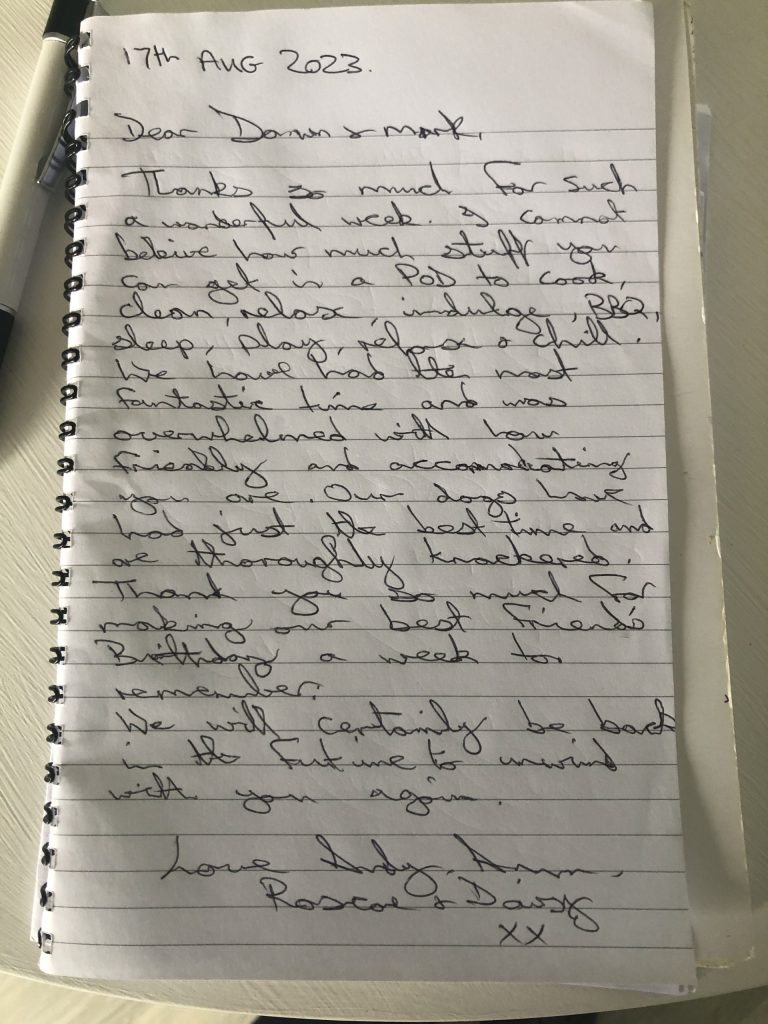 17th AUG 2023.
Dear Dawn & Mark,
Thanks so much for such
a wonderful week. I cannot
beleive how much stuff you
can get in a POD to cook,
clean, relax, indulge, BBQ,
sleep, play, relax & chill.
We have had the most
fantastic time and was
overwhelmed with how
friendly and accomodating
you are. Our dogs have
had just the best time and
are thoroughly knackered.
Thank you so much for
making our best friend's
Birthday a week to
remember.
We will certainly be back
in the future to unwind
with you again.
Love Andy, Ann,
Roscoe & Daisy
xx